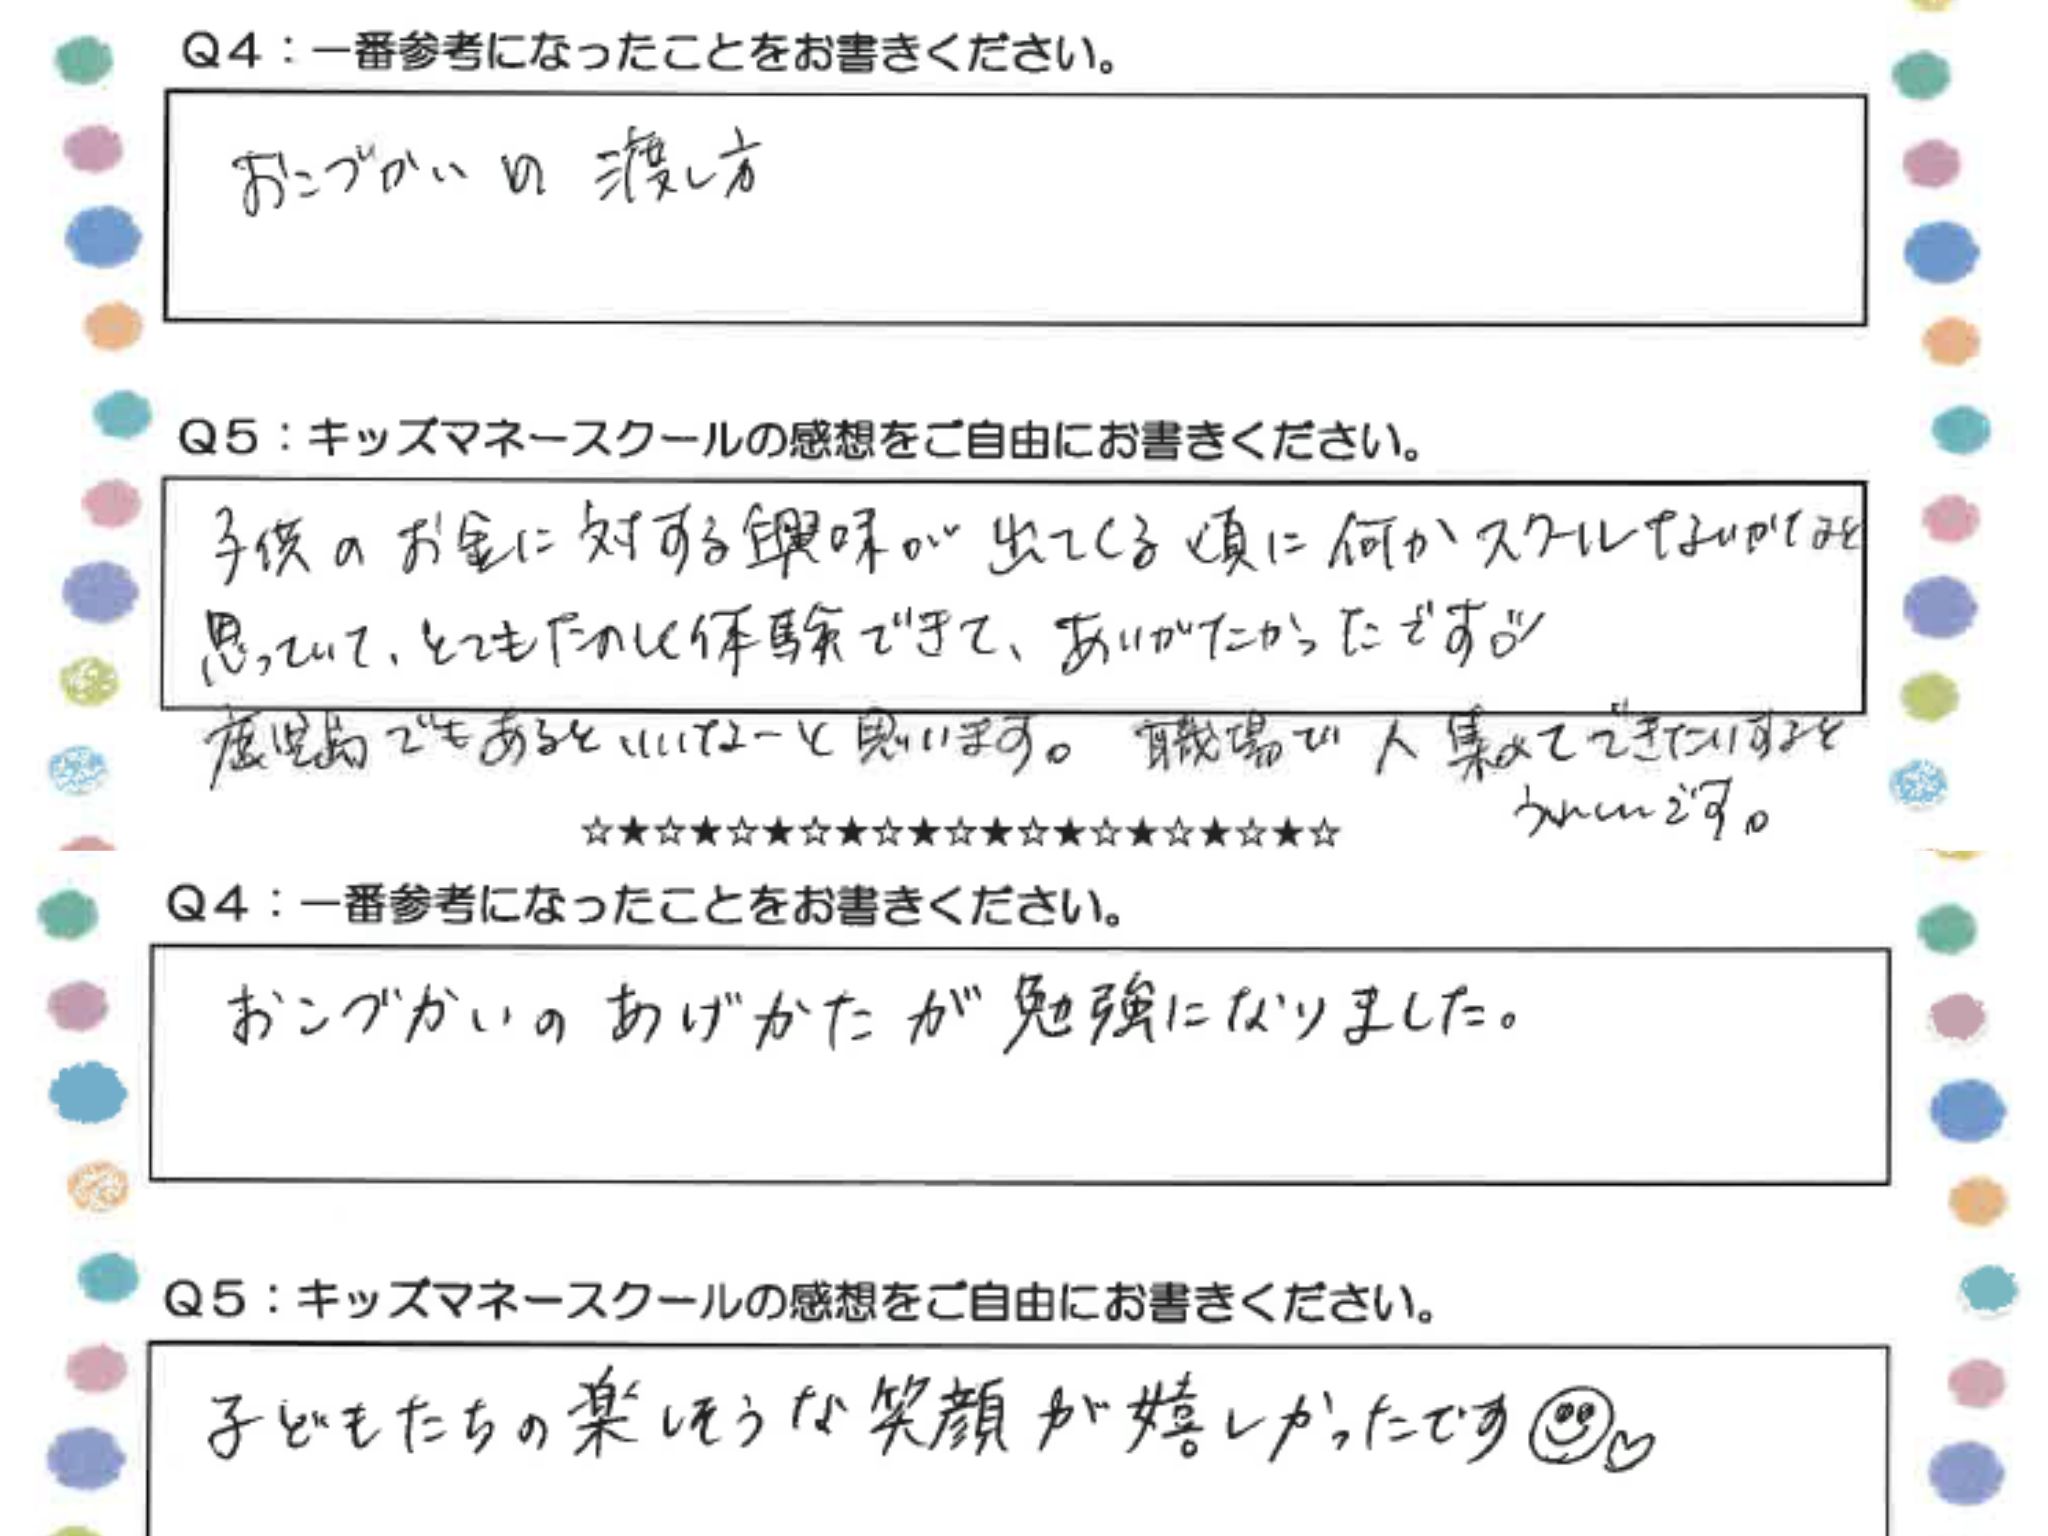 Q4：一番参考になったことをお書きください。
おこづかいの 渡し方
Q5：キッズマネースクールの感想をご自由にお書きください。
子供のお金に対する興味が出てくる頃に何かスクールないかなと
思っていて、とてもたのしく体験できて、ありがたかったです♡
鹿児島でもあるといいなーと思います。 職場で人集めてできたりすると
うれしいです。
☆★☆★☆★☆★☆★☆★☆★☆★☆★☆★☆
Q4：一番参考になったことをお書きください。
おこづかいの あげかたが 勉強になりました。
Q5：キッズマネースクールの感想をご自由にお書きください。
子どもたちの楽しそうな笑顔が嬉しかったです☺♡